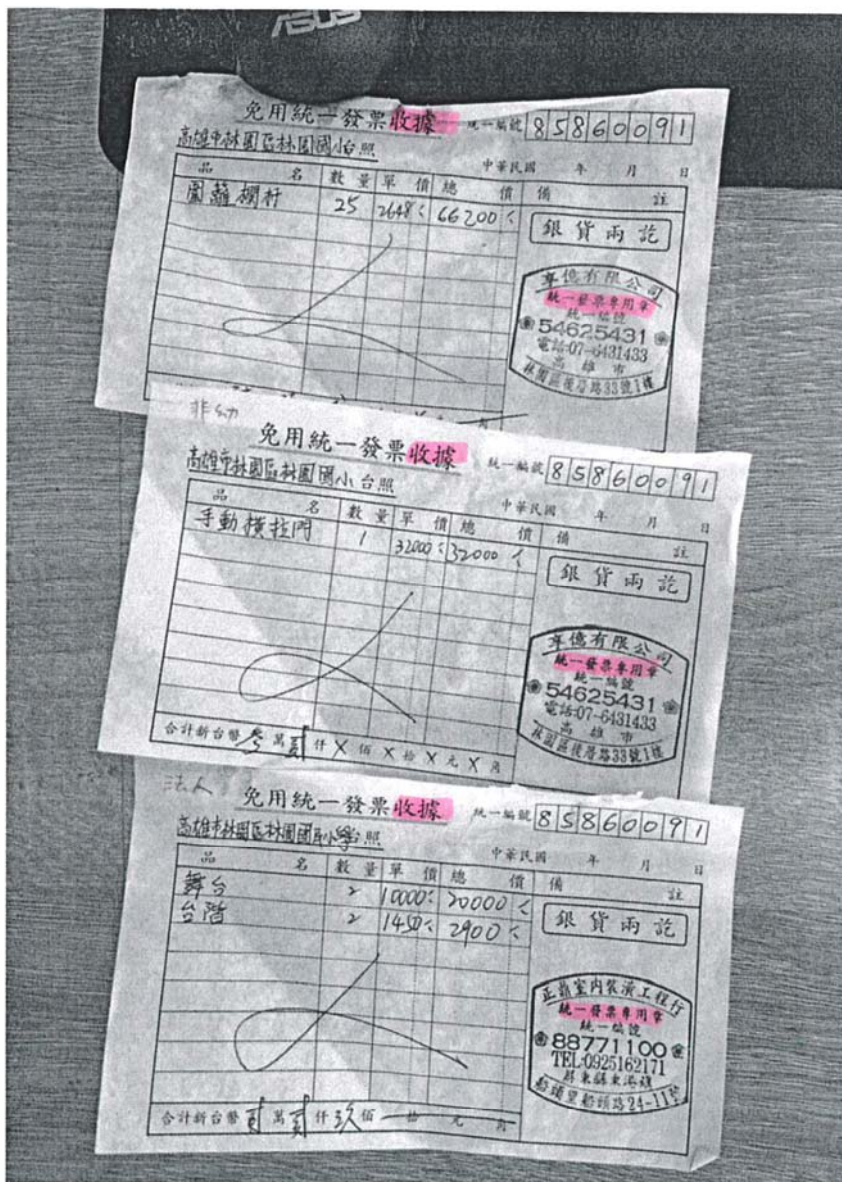 ASUS
免用統一發票收據 統一編號 85860091
高雄市林園區林園國小台照
中華民國 年 月 日
品名 數量 單價 總價 備註
圍籬欄杆 25 2648 66200
銀貨兩訖
億有限公司
統一發票專用章
統一編號
54625431
電話:07-6431433
高雄市
林園區後厝路33號1樓
非幼
免用統一發票收據 統一編號 85860091
高雄市林園區林園國小台照
中華民國 年 月 日
品名 數量 單價 總價 備註
手動橫拉門 1 32000 32000
銀貨兩訖
億有限公司
統一發票專用章
統一編號
54625431
電話:07-6431433
高雄市
林園區後厝路33號1樓
合計新台幣 參萬貳仟X佰X拾X元X角
法人
免用統一發票收據 統一編號 85860091
高雄市林園區林園國民小學台照
中華民國 年 月 日
品名 數量 單價 總價 備註
舞台 2 10000 20000
台階 2 1450 2900
銀貨兩訖
正鼎室內裝潢工程行
統一發票專用章
統一編號
88771100
TEL:0925162171
屏東縣東港鎮
船頭里船頭路24-11號
合計新台幣 貳萬貳仟玖佰 拾 元 角